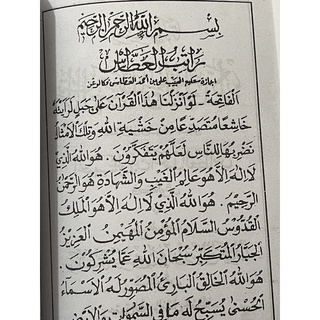 بِسْمِ اللهِ الرَّحْمٰنِ الرَّحِيْمِ
رَاتِبُ الْعَطَّاسْ
اجازة الحبيب علي بن احمد العطاس
اَلْفَاتِحَةَ - لَوْ اَنْزَلْنَا هٰذَا الْقُرْآنَ عَلٰى جَبَلٍ لَرَاَيْتَهُ
خَاشِعًا مُتَصَدِّعًا مِنْ خَشْيَةِ اللهِ وَتِلْكَ الْاَمْثَالُ
نَضْرِبُهَا لِلنَّاسِ لَعَلَّهُمْ يَتَفَكَّرُوْنَ. هُوَ اللهُ الَّذِيْ
لَا اِلٰهَ اِلَّا هُوَ عَالِمُ الْغَيْبِ وَالشَّهَادَةِ هُوَ الرَّحْمٰنُ
الرَّحِيْمُ. هُوَ اللهُ الَّذِيْ لَا اِلٰهَ اِلَّا هُوَ الْمَلِكُ
الْقُدُّوْسُ السَّلَامُ الْمُؤْمِنُ الْمُهَيْمِنُ الْعَزِيْزُ
الْجَبَّارُ الْمُتَكَبِّرُ سُبْحَانَ اللهِ عَمَّا يُشْرِكُوْنَ.
هُوَ اللهُ الْخَالِقُ الْبَارِئُ الْمُصَوِّرُ لَهُ الْاَسْمَاءُ
الْحُسْنٰى يُسَبِّحُ لَهُ مَا فِي السَّمٰوَاتِ وَالْاَرْضِ